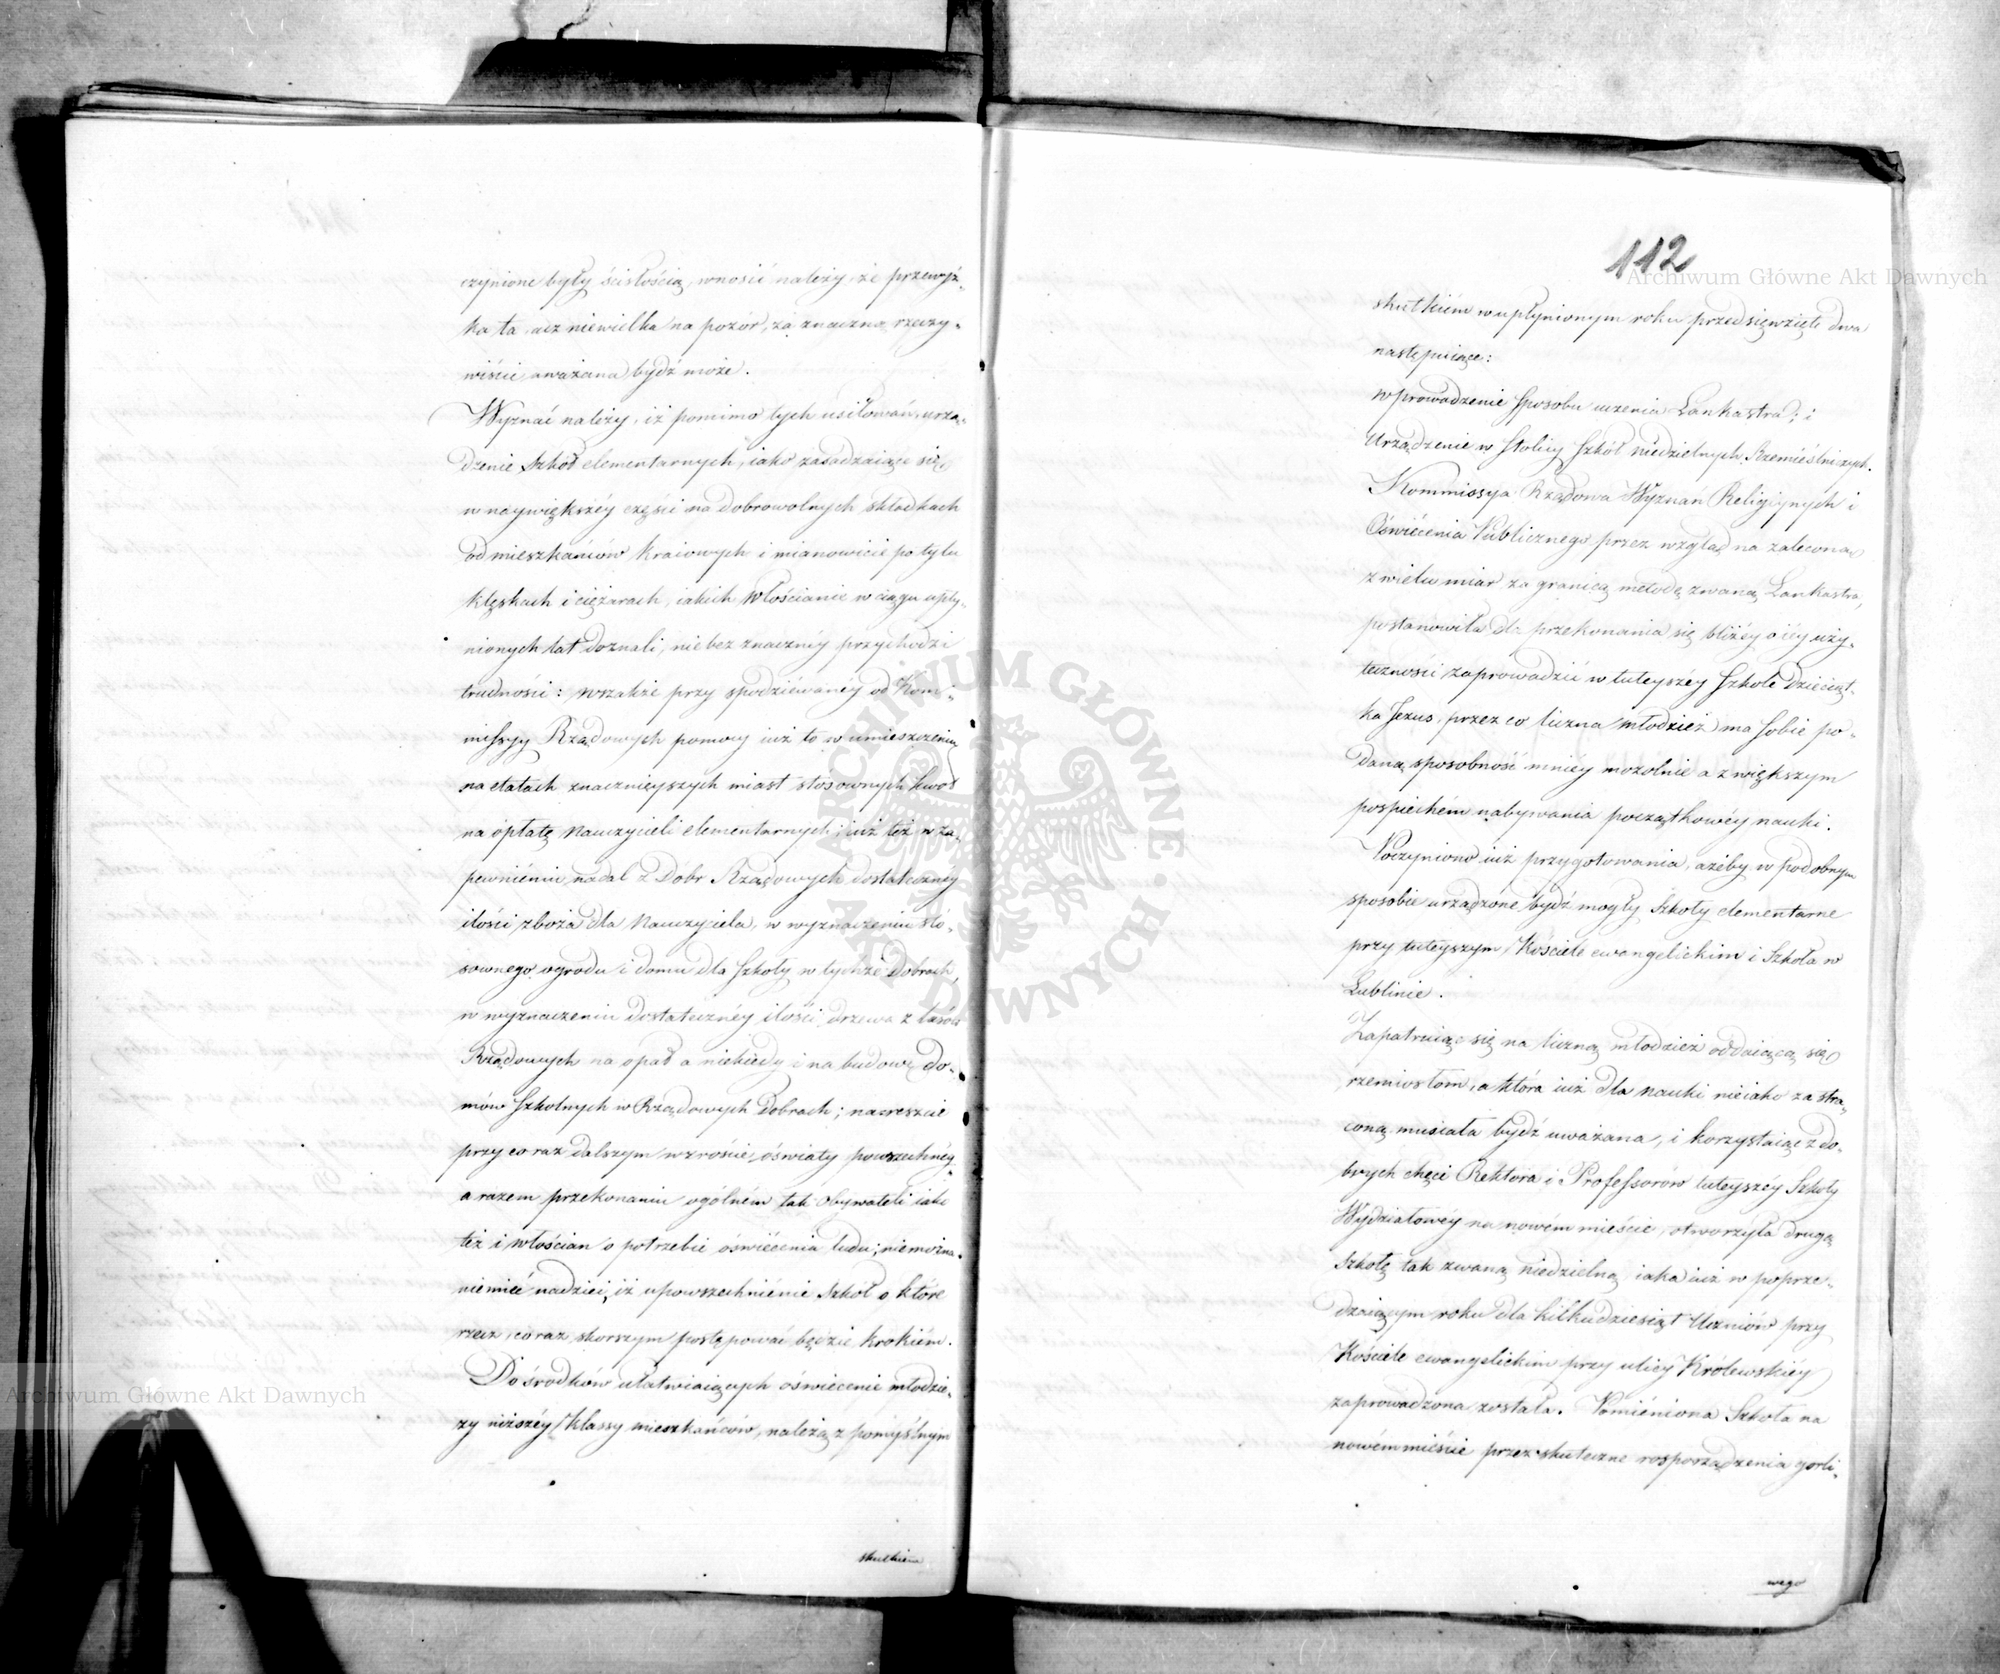 czynione były ścisłością, wnosić należy, że przewyż-
ka ta, acz niewielka na pozór, za znaczną rzeczy-
wiście uważana bydź może.
Wyznać należy, iż pomimo tych usiłowań, urzą-
dzenie Szkół elementarnych, iako zasadzaiące się
w naywiększéy części na dobrowolnych składkach
od mieszkańców kraiowych i mianowicie po tylu
klęskach i ciężarach, iakich Włościanie w ciągu upły-
nionych lat doznali, nie bez znacznéy przychodzi
trudności: wszakże przy spodziéwanéy od Kom-
missyy Rządowych pomocy iuż to w umieszczeniu
na etatach znacznieyszych miast stosownych kwot
na opłatę Nauczycieli elementarnych; iuż też w za-
pewnieniu nadal z Dóbr Rządowych dostateczney
ilości zboża dla Nauczyciela, w wyznaczeniu sto-
sownego ogrodu i domu dla Szkoły w tychże dobrach,
w wyznaczeniu dostatecznéy ilości drzewa z lasów
Rządowych na opał a niekiedy i na budowę do-
mów Szkolnych w Rządowych Dobrach; nareszcie
przy coraz dalszym wzroście oświaty powszechnéy
a razem przekonaniu ogólném tak Obywateli iak
też i włościan o potrzebie oświécenia ludu; niemożna
niemieć nadziei, iż upowszechniénie Szkół o które
rzecz, coraz skorszym postępować będzie krokiém.
Do środków ułatwiaiących oświecenie młodzie-
zy niższéy klassy mieszkańców, należą z pomyślnym
skutkiem
112
skutkiém w upłynionym roku przedsięwzięte dwa
następuiące:
wprowadzenie sposobu uczenia Lankastra; i
Urządzenie w Stolicy Szkół niedzielnych Rzemieślniczych.
Kommissya Rządowa Wyznań Religiynych i
Oświécenia Publicznego przez wzgląd na zaleconą
z wielu miar za granicą metodę zwaną Lankastra,
postanowiła dla przekonania się bliżéy o iéy uży-
teczności zaprowadzić w tuteyszéy Szkole Dzieciąt-
ka Jezus, przez co liczna młodzież ma sobie po-
daną sposobność mniéy mozolnie a z większym
pospiechém nabywania początkowéy nauki.
Poczyniono iuż przygotowania, ażeby w podobnym
sposobie urządzone bydź mogły Szkoły elementarne
przy tuteyszym Kościele ewangelickim i Szkoła w
Lublinie.
Zapatruiąc się na liczną młodzież oddaiącą się
rzemiosłom, a która iuż dla nauki nieiako za stra-
coną musiała bydź uważana, i korzystaiąc z do-
brych chęci Rektora i Professorów tuteyszey Szkoły
Wydziałowéy na nowém mieście, otworzyła drugą
Szkołę tak zwaną niedzielną, iaka iuż w poprze-
dzaiącym roku dla kilkudziesiąt Uczniów przy
Kościele ewangelickim przy ulicy Królewskiéy
zaprowadzona została. Pomiéniona Szkoła na
nowém mieście przez skuteczne rosporządzenia gorli-
wego
Archiwum Główne Akt Dawnych
Archiwum Główne Akt Dawnych
ARCHIWUM GŁÓWNE AKT DAWNYCH